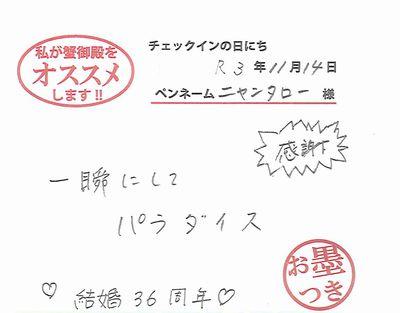 私が蟹御殿を
オススメ
します!!
チェックインの日にち
R3年11月14日
ペンネーム ニャンタロー 様
感謝!
一瞬にして
パラダイス
お墨
つき
♡ 結婚36周年♡